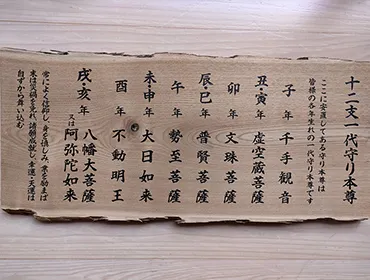 十二支一代守り本尊
ここに安置してある守り本尊は
皆様の各年生れの一代守り本尊です
子年 千手観音
丑・寅年 虚空蔵菩薩
卯年 文珠菩薩
辰・巳年 普賢菩薩
午年 勢至菩薩
未・申年 大日如来
酉年 不動明王
戌・亥年 八幡大菩薩
又は 阿弥陀如来
常によく信仰し、身を慎しみ、業を励まば
末は災禍を免れ、諸願成就し、幸運・天運は
自ずから舞い込む